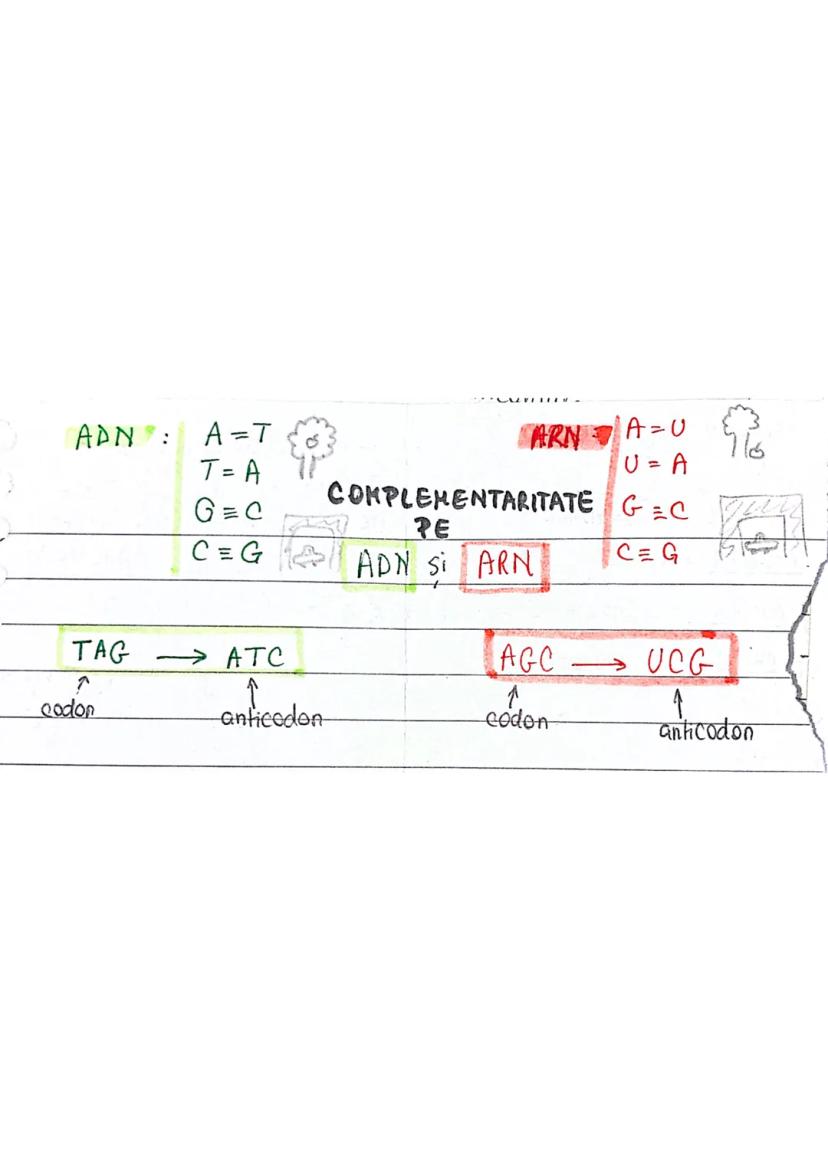 ADN :
A = T
T = A
G ≡ C
C ≡ G
COMPLEMENTARITATE
PE
ADN și ARN
ARN :
A = U
U = A
G ≡ C
C ≡ G
TAG → ATC
codon
anticodon
AGC → UCG
codon
anticodon